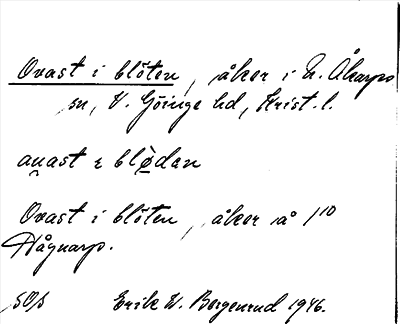 Ovast i blöten, åker i N. Åkarps
sn, V. Göinge hd, Krist. l.
au̯ast ε blø̄dan
Ovast i blöten, åker å 1/10
Hågnarp.
SOS Erik W. Borgenrud 1946.